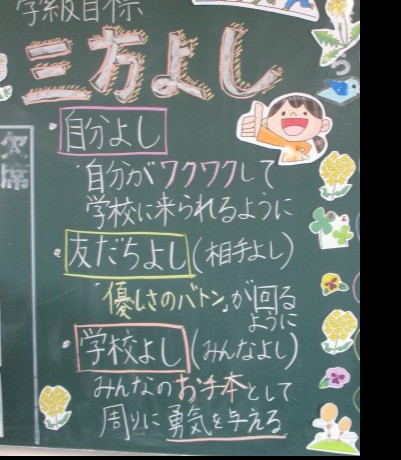 学級目標
三方よし
自分よし
自分がワクワクして
学校に来られるように
友だちよし(相手よし)
"優しさのバトン"が回る
ように
学校よし(みんなよし)
みんなのお手本として
周りに勇気を与える
欠席